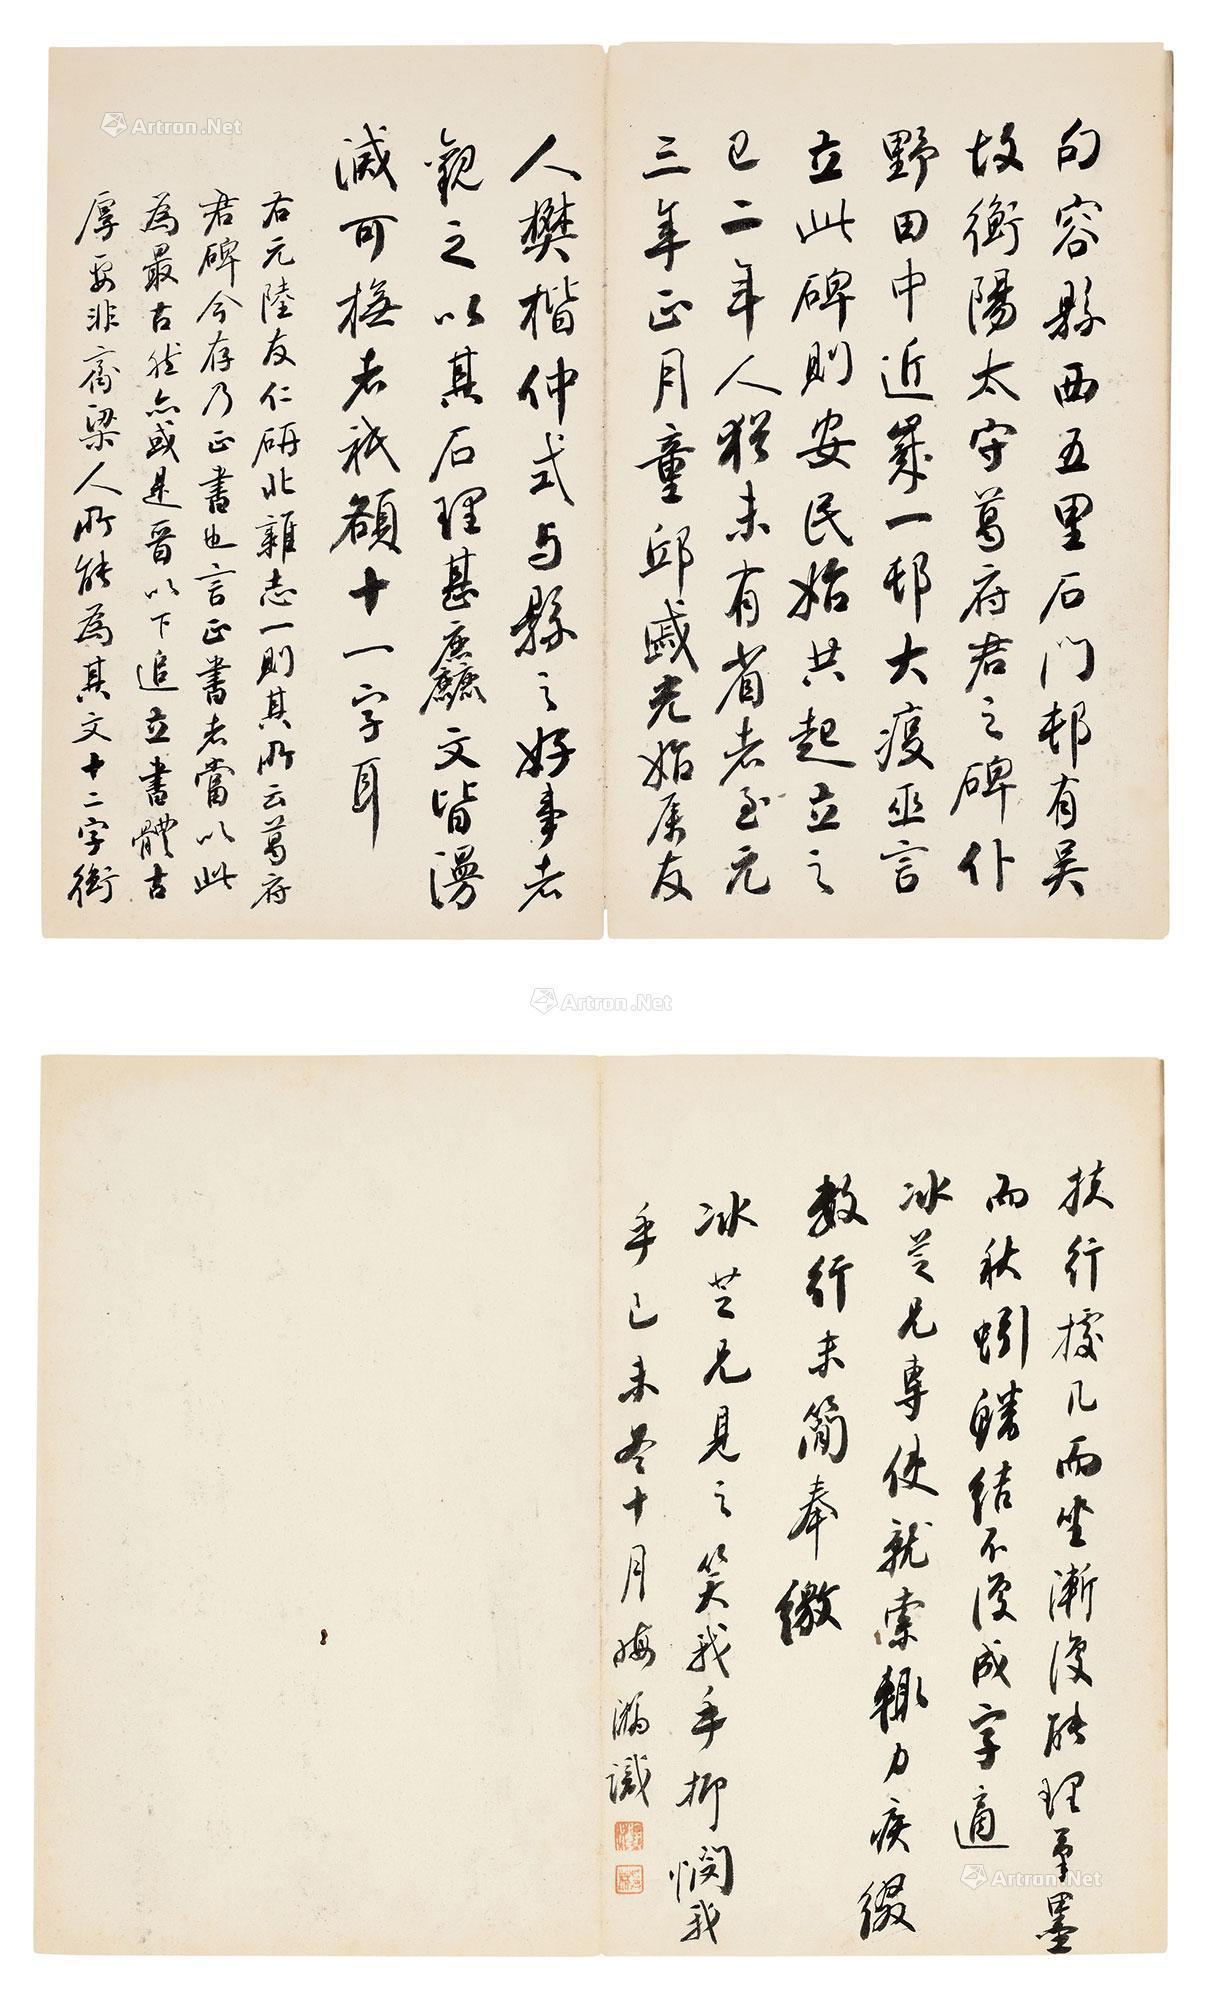 句容縣西五里石門邨有吴
故衡陽太守葛府君之碑仆
野田中近歲一邨大疫巫言
立此碑則安民始共起立之
已二年人猶未有省者至元
三年正月童邱臧光始屬友
人樊楷仲式与縣之好事者
觀之以其石理甚麁麤文皆漫
滅可橅者祇額十一字耳
右元陸友仁研北雜志一則其所云葛府
君碑今存乃正書也言正書者當以此
為最古然亦或是晉以下追立書體古
厚要非齊梁人所能為其文十二字衡
扶行據几而坐漸復能理筆墨
而秋蚓蟠結不復成字適
冰芝兄專使就索輒力疾綴
數行未簡奉繳
冰芝兄見之笑我乎抑憫我
乎己未冬十月晦 識
Artron.Net
Artron.Net
Artron.Net